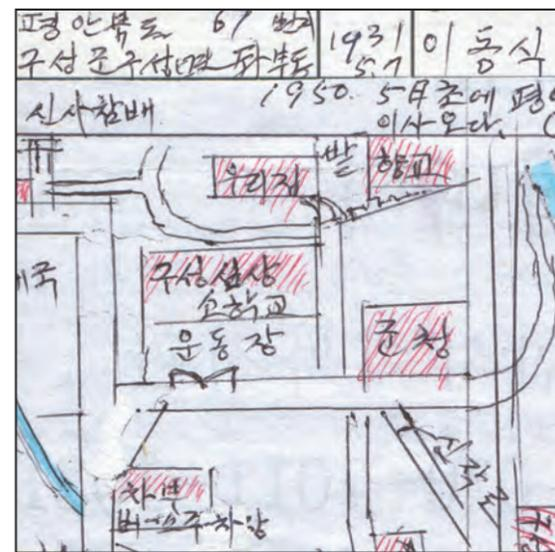 평안북도 67 번지
구성군구성면 좌부동
1931
5.7
이동식
신사참배
1950. 5月초에 평
이사오다.
밭
향교
우리집
국
구성심상
소학교
운동장
군청
신작로
차면
버스주차장